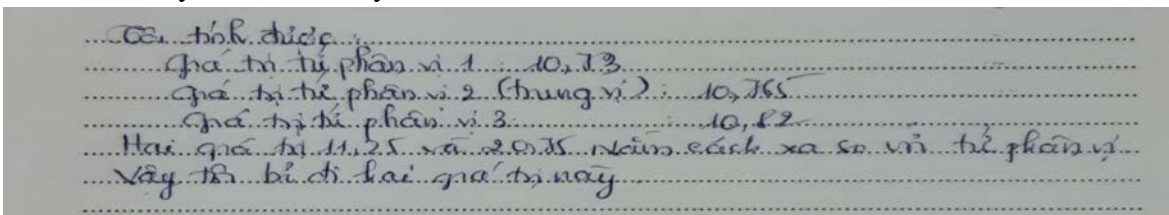 Ta tính được:
Giá trị tứ phân vị 1: 10,73
Giá trị tứ phân vị 2 (trung vị): 10,765
Giá trị tứ phân vị 3: 10,82
Hai giá trị 11,25 và 20,75 nằm cách xa so với tứ phân vị
Vậy ta bỏ đi hai giá trị này